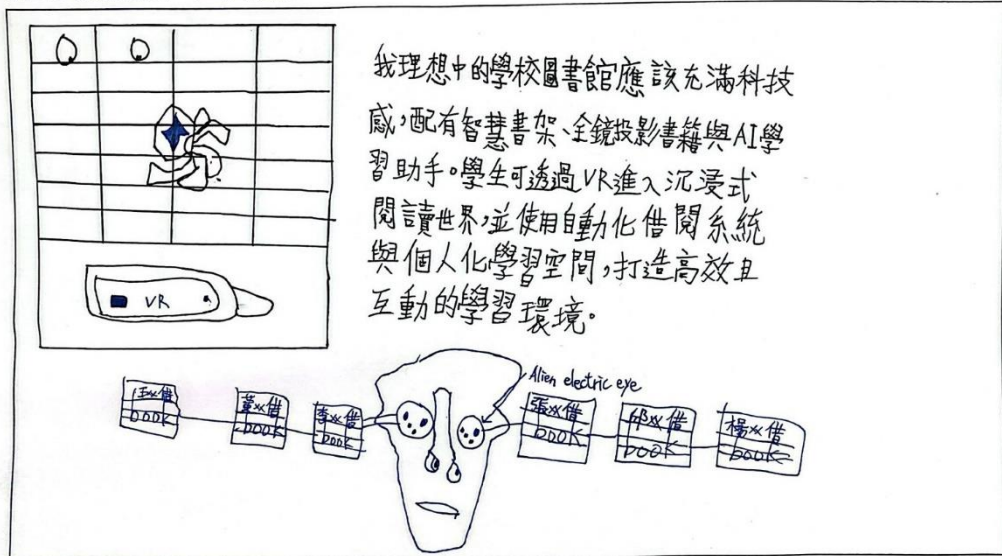 我理想中的學校圖書館應該充滿科技
感,配有智慧書架、全鏡投影書籍與AI學
習助手。學生可透過VR進入沉浸式
閱讀世界,並使用自動化借閱系統
與個人化學習空間,打造高效且
互動的學習環境。
VR
Alien electric eye
汪xx借
BOOK
董xx借
BOOK
李xx借
BOOK
張xx借
BOOK
邱xx借
BOOK
楊xx借
BOOK